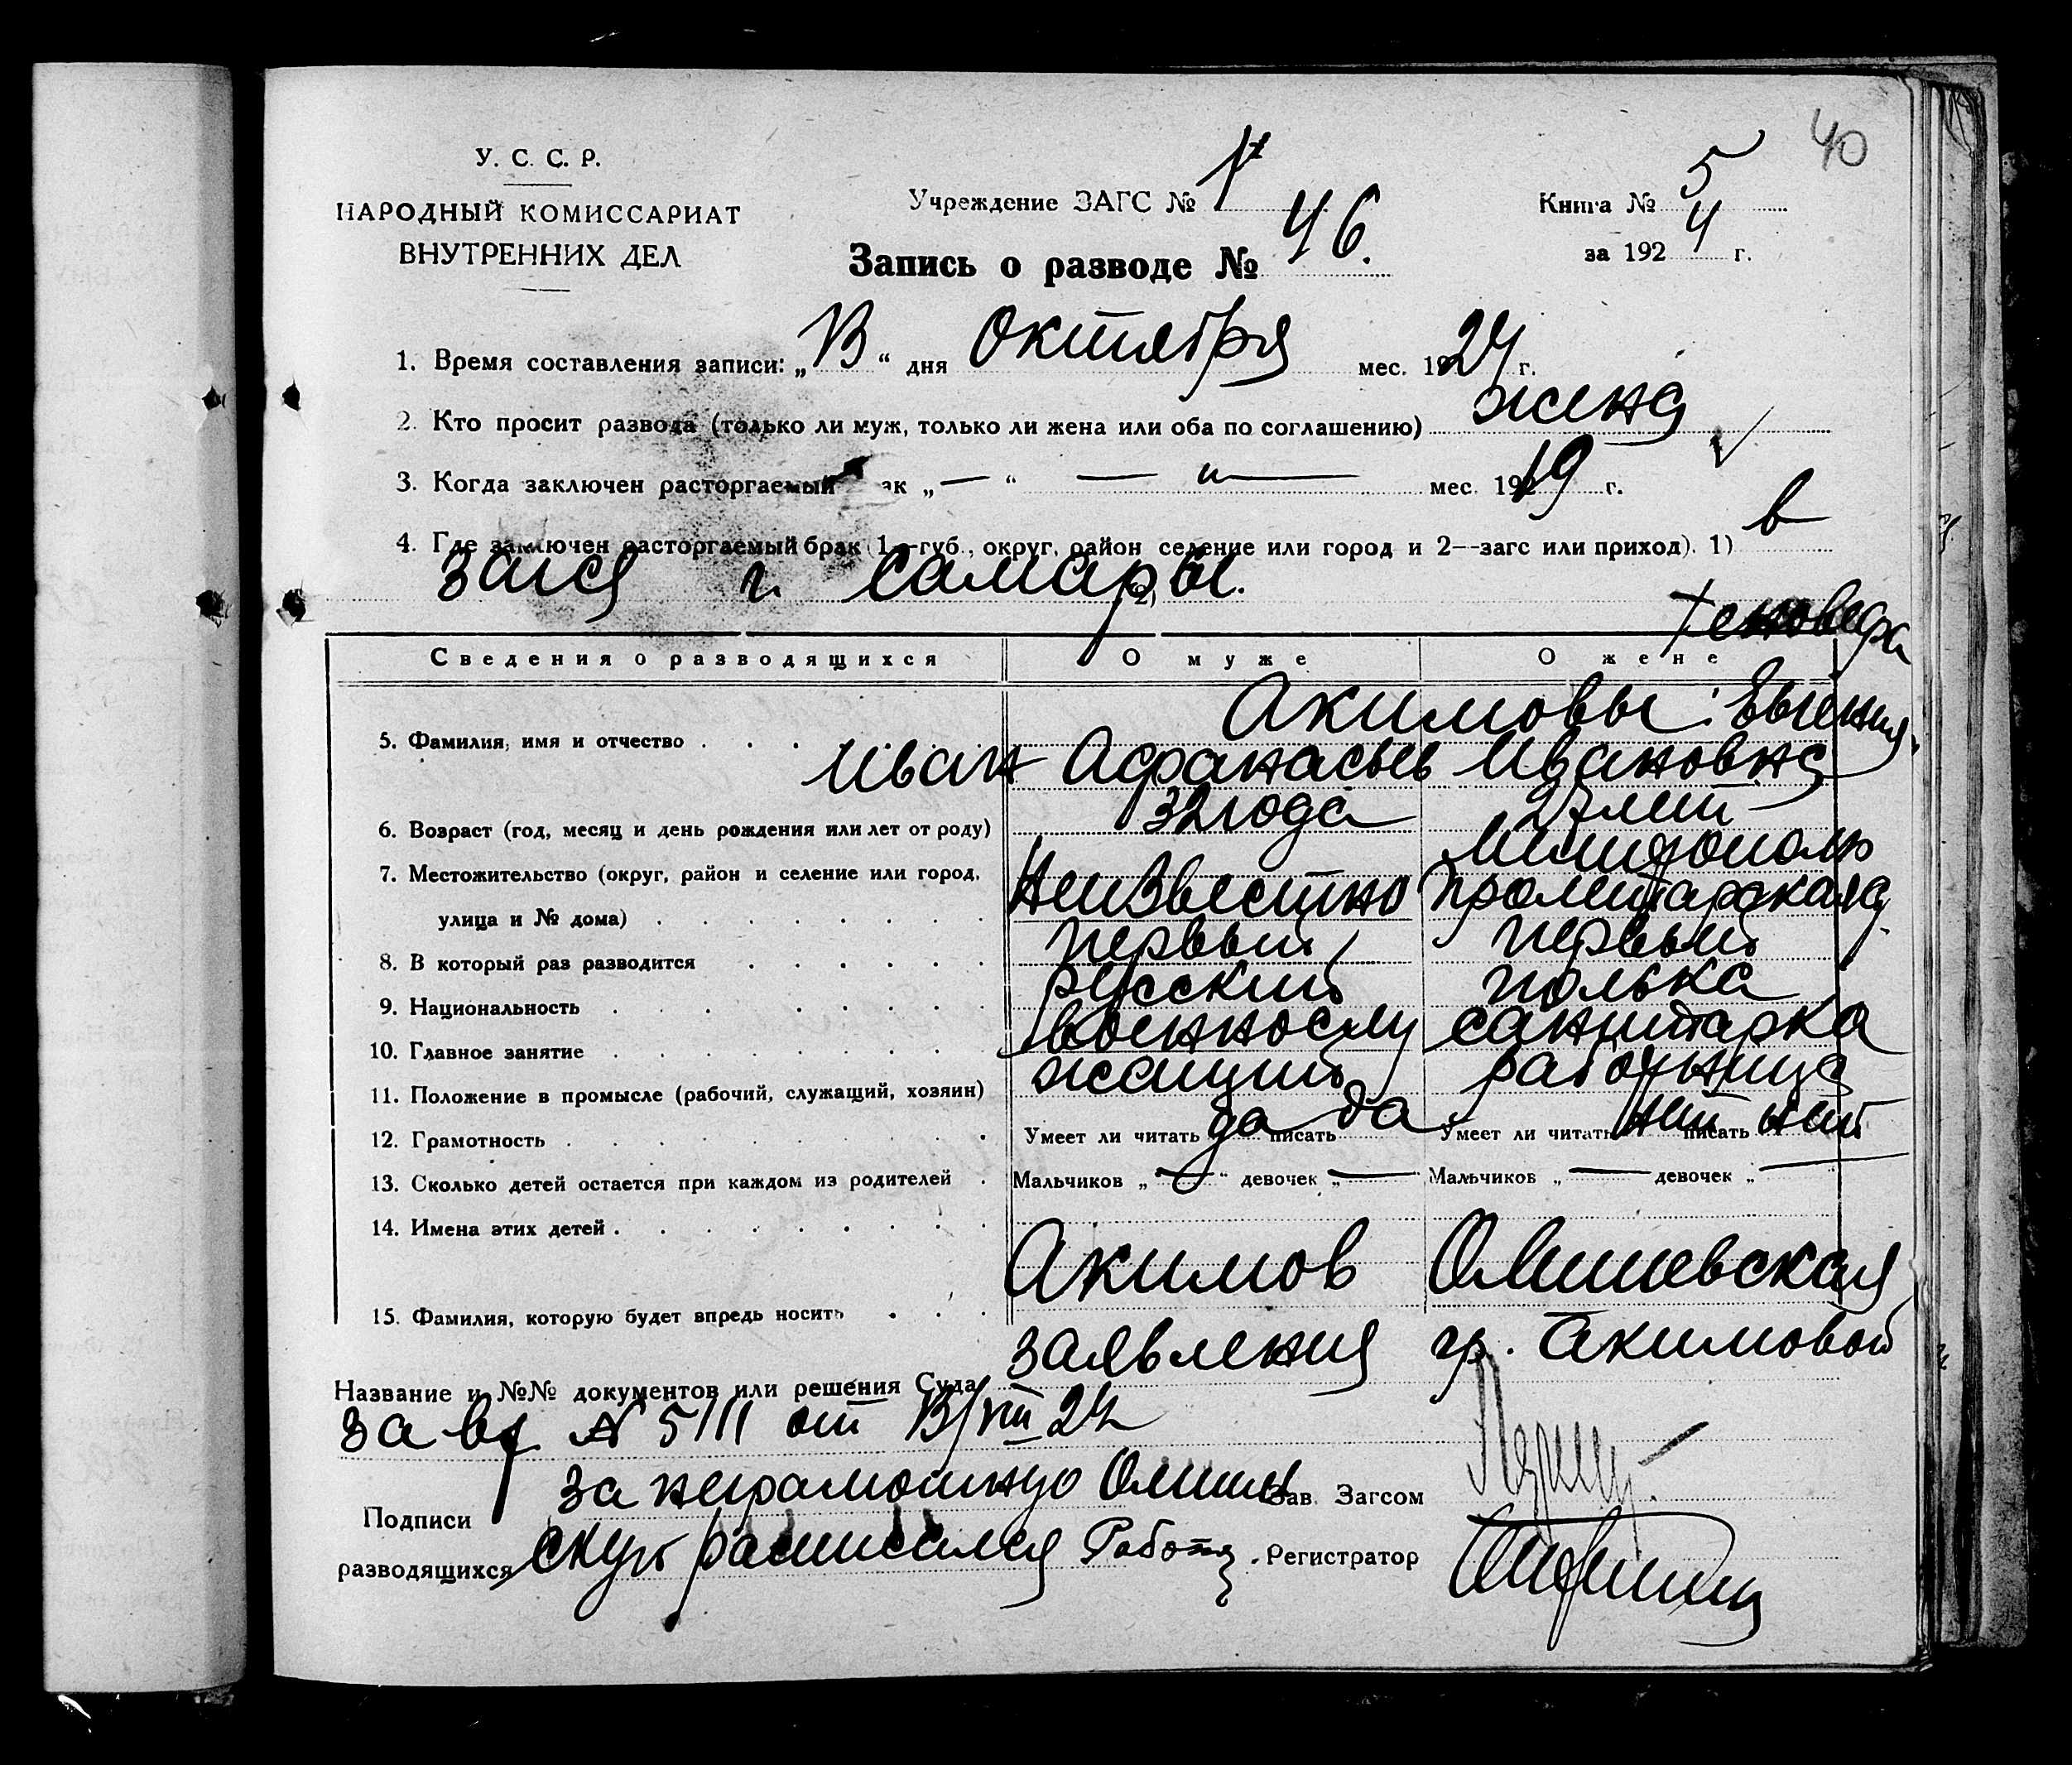 40
У. С. С. Р.
НАРОДНЫЙ КОМИССАРИАТ
ВНУТРЕННИХ ДЕЛ
Учреждение ЗАГС № 1
Книга № 5
за 1924 г.
Запись о разводе № 46.
1. Время составления записи: „13“ дня Октября мес. 1924 г.
2. Кто просит развода (только ли муж, только ли жена или оба по соглашению) жена
3. Когда заключен расторгаемый ак „—“ — „ — мес. 1919 г.
4. Где заключен расторгаемый брак (1—губ., округ, район селение или город и 2—загс или приход). 1) в
загся г. Самары. 2)
Сведения о разводящихся О муже О жене
Акимовы: Евгения
5. Фамилия, имя и отчество Иван Афанасьев Ивановна
6. Возраст (год, месяц и день рождения или лет от роду) 32 года 27 лет
7. Местожительство (округ, район и селение или город, Неизвестно Мелитополь
улица и № дома) Пролетарская
8. В который раз разводится первый первый
9. Национальность русский полька
10. Главное занятие военнослу санитарка
11. Положение в промысле (рабочий, служащий, хозяин) жащий работница
12. Грамотность Умеет ли читать да писать да Умеет ли читать нет писать нет
13. Сколько детей остается при каждом из родителей Мальчиков „—“ девочек „— Мальчиков „— девочек „—
14. Имена этих детей
15. Фамилия, которую будет впредь носить Акимов Олишевская
Название и №№ документов или решения Суда заявления гр. Акимовой
за вх № 5111 от 13/VIII 24
Подписи за неграмотную Олише Зав. Загсом
разводящихся скую расписался Регистратор